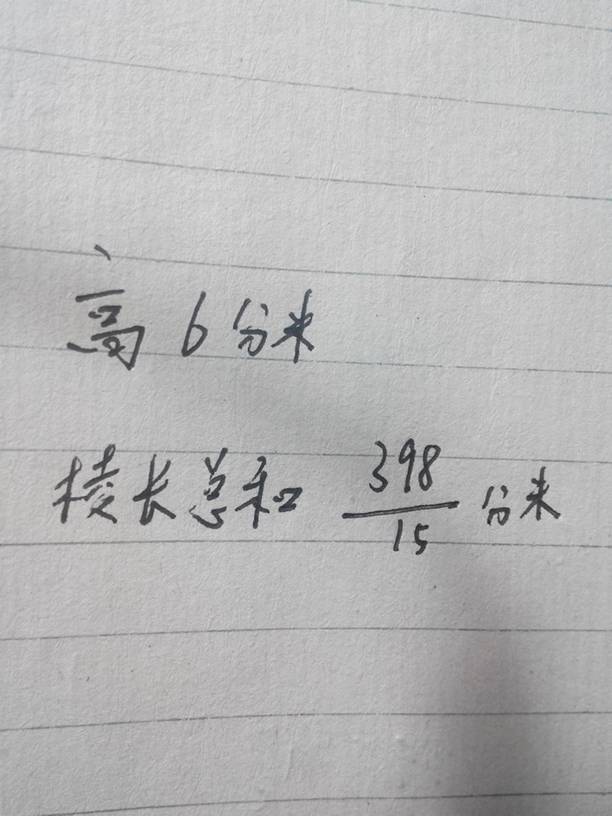 高 6 分米
棱长总和 398/15 分米